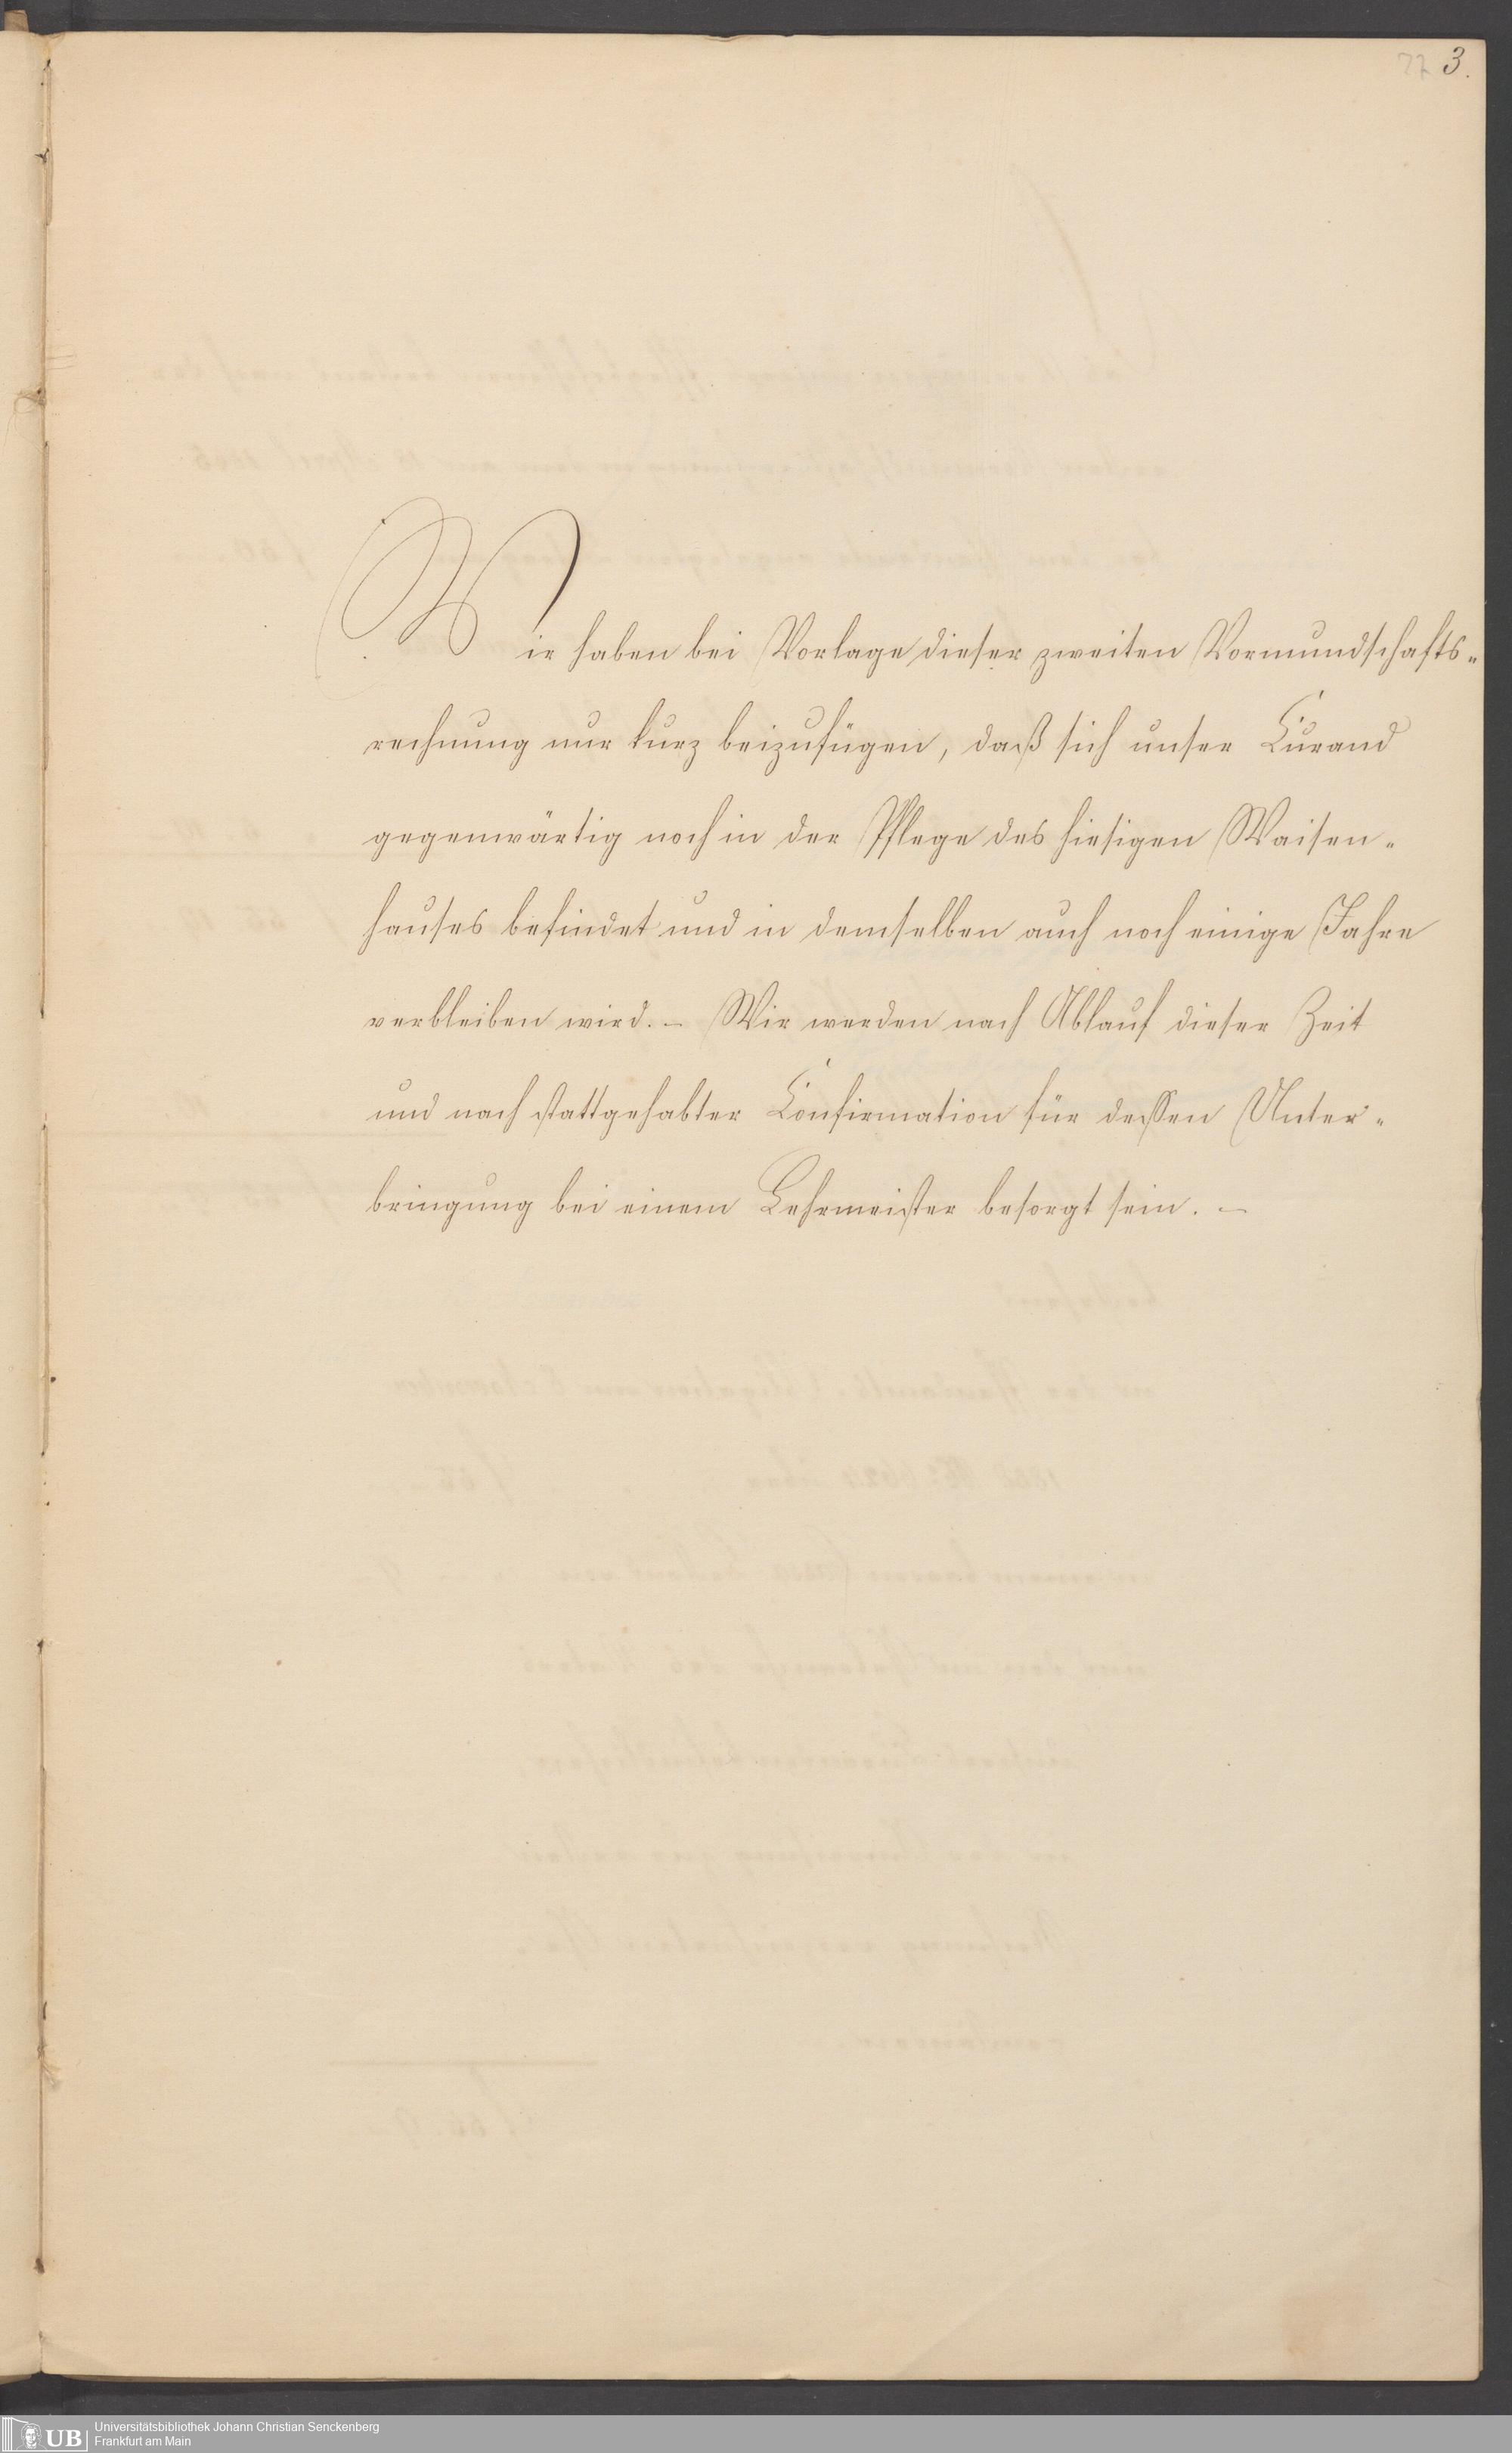 3.
Wir haben bei Vorlage dieser zweiten Vormundschafts-
rechnung nur kurz beizufügen, daß sich unser Curand
gegenwärtig noch in der Pflege des hiesigen Waisen-
hauses befindet und in demselben auch noch einige Jahre
verbleiben wird. – Wir werden nach Ablauf dieser Zeit
und nach stattgehabter Confirmation für dessen Unter-
bringung bei einem Lehrmeister besorgt sein. –
UB
Universitätsbibliothek Johann Christian Senckenberg
Frankfurt am Main